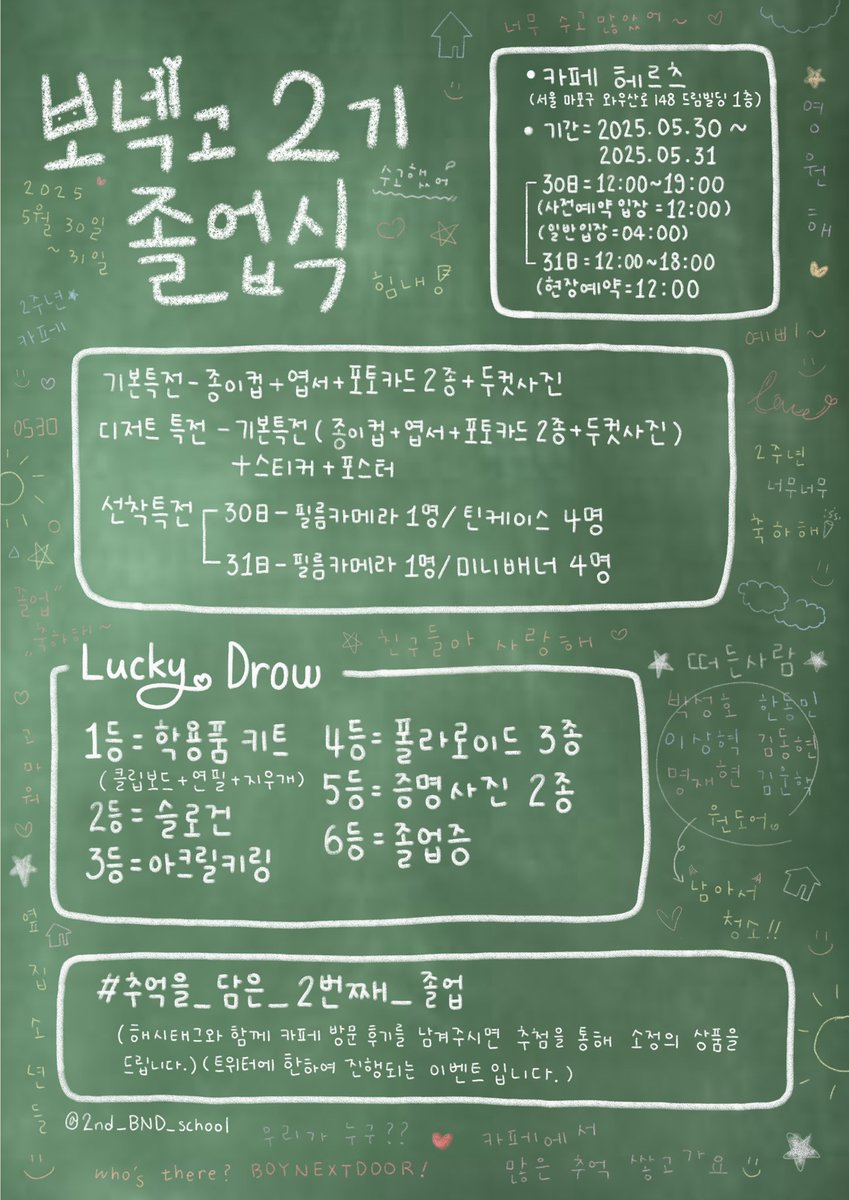 너무 수고많았어~
보넥고 2기
졸업식
• 카페 헤르츠
(서울 마포구 와우산로 148 드림빌딩 1층)
• 기간 = 2025.05.30 ~
2025.05.31
30日 = 12:00~19:00
(사전예약 입장 = 12:00)
(일반입장 = 04:00)
31日 = 12:00~18:00
(현장예약 = 12:00
영원해
수고했어
2025
5월 30일
~ 31일
힘내
2주년
카페
0530
예삐~
love
2주년
너무너무
축하해
기본특전 - 종이컵 + 엽서 + 포토카드 2종 + 두컷사진
디저트 특전 - 기본특전 ( 종이컵 + 엽서 + 포토카드 2종 + 두컷사진 )
+ 스티커 + 포스터
선착특전
30日 - 필름카메라 1명 / 틴케이스 4명
31日 - 필름카메라 1명 / 미니배너 4명
"졸업"
"축하해~
친구들아 사랑해
Lucky Drow
1등 = 학용품 키트
(클립보드 + 연필 + 지우개)
2등 = 슬로건
3등 = 아크릴키링
4등 = 폴라로이드 3종
5등 = 증명사진 2종
6등 = 졸업증
떠든사람
박성호 한동민
이상혁 김동현
명재현 김운학
원도어
남아서
청소!!
고마워
옆집소년들
#추억을_담은_2번째_졸업
(해시태그와 함께 카페 방문 후기를 남겨주시면 추첨을 통해 소정의 상품을
드립니다.) (트위터에 한하여 진행되는 이벤트 입니다.)
@2nd_BND_school
우리가 누구??
who's there? BOYNEXTDOOR!
카페에서
많은 추억 쌓고가요